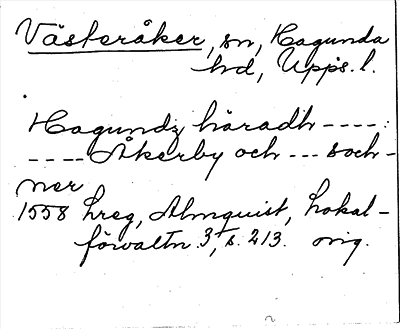 Västeråker, sn, Hagunda
hd, Upps. l.
Hagundz häradh ----:
---- Åkerby och --- soch-
ner
1558 hreg, Almquist, Lokal-
förvaltn. 3, s. 213. orig.